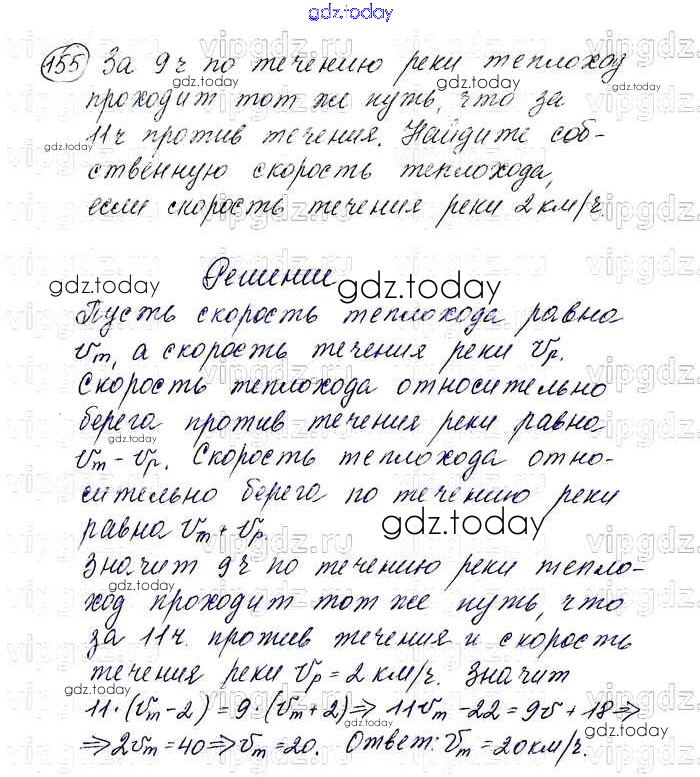 gdz.today
155 За 9ч по течению реки теплоход
проходит тот же путь, что за
11ч против течения. Найдите соб-
ственную скорость теплохода,
если скорость течения реки 2км/ч.
Решение
Пусть скорость теплохода равна
Vт, а скорость течения реки Vр.
Скорость теплохода относительно
берега против течения реки равна
Vт - Vр. Скорость теплохода отно-
сительно берега по течению реки
равна Vт + Vр.
Значит 9ч по течению реки тепло-
ход проходит тот же путь, что
за 11ч. против течения и скорость
течения реки Vр = 2 км/ч. Значит
11·(Vт-2) = 9·(Vт+2) ⇒ 11Vт -22 = 9V + 18 ⇒
⇒ 2Vт = 40 ⇒ Vт = 20. Ответ: Vт = 20км/ч.